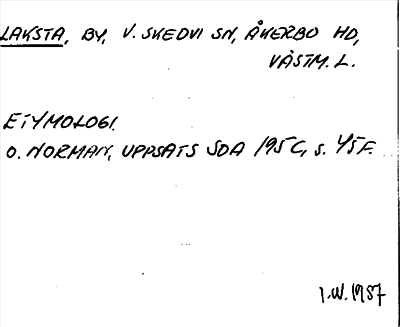 LAKSTA, BY, V. SKEDVI SN, ÅKERBO HD,
VÄSTM. L.
ETYMOLOGI.
O. NORMAN, UPPSATS SOA 195C, s. 45F.
I.W. 1987